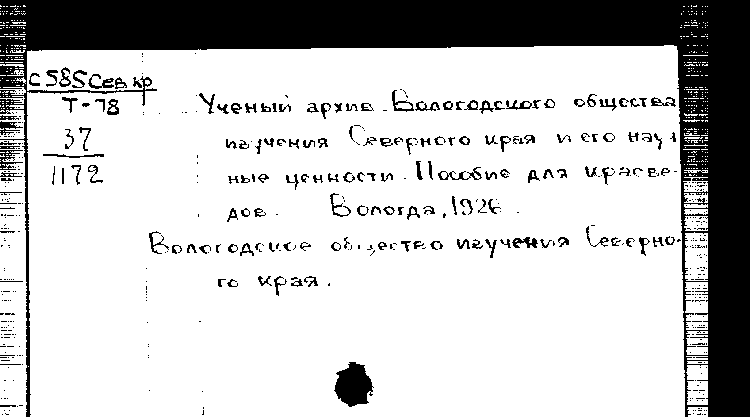 С585Сев.кр
Т-78
37
1172
Ученый архив Вологодского общества
изучения Северного края и его науч
ные ценности. Пособие для краеве-
дов. Вологда, 1926.
Вологодское общество изучения Северно-
го края.